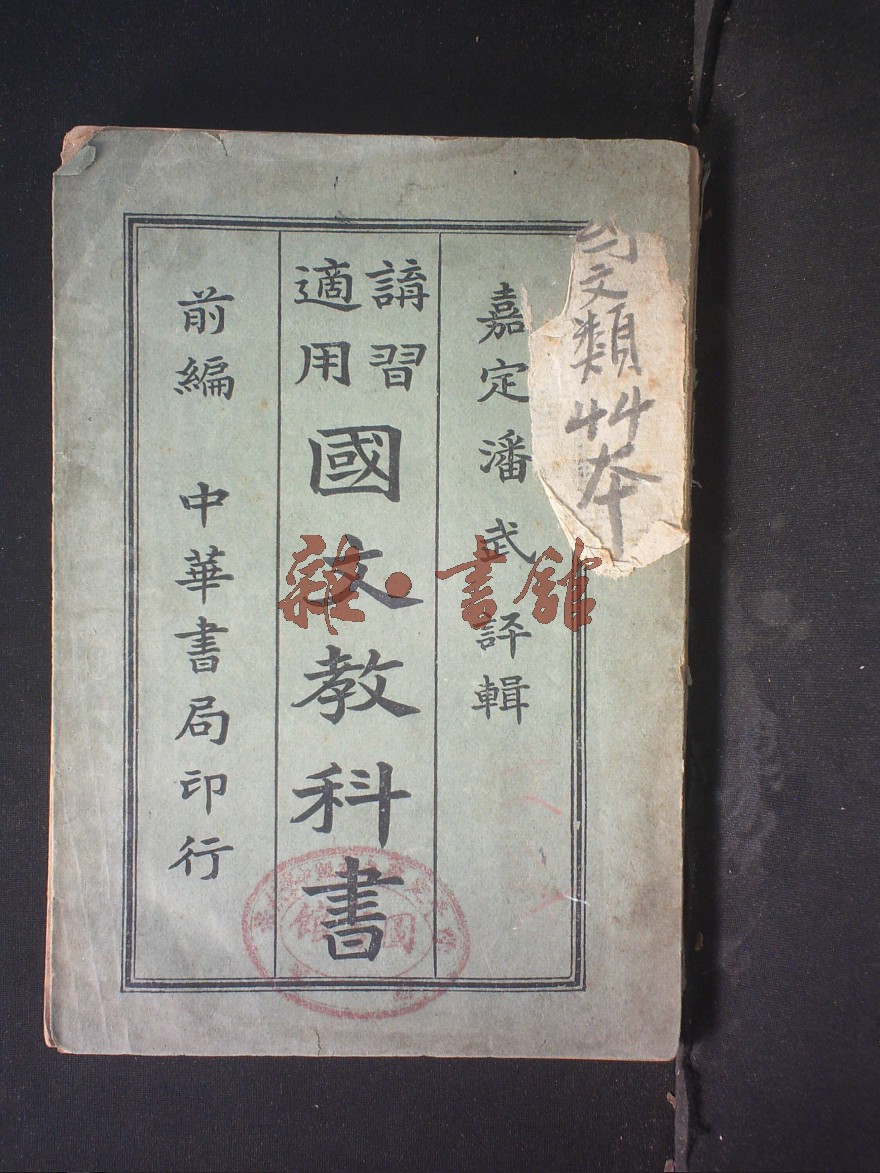 嘉定潘武評輯
講習
適用
國文教科書
前編 中華書局印行
文類
雜·書館